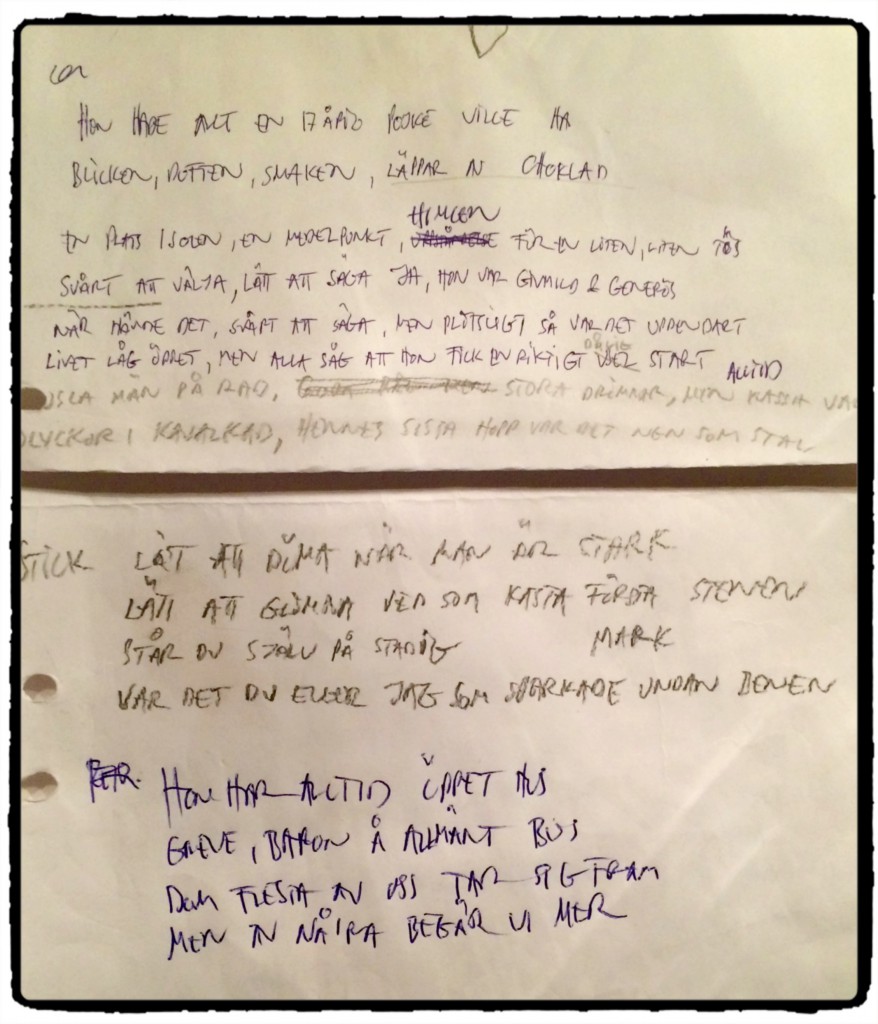 HON HADE ALLT EN 17 ÅRIG POJKE VILLE HA
BLICKEN, DOFTEN, SMAKEN, LÄPPAR AV CHOKLAD
HIMLEN
EN PLATS I SOLEN, EN MEDELPUNKT, FÖR EN LITEN, LITEN TÖS
SVÅRT ATT VÄLJA, LÄTT ATT SÄGA JA, HON VAR GIVMILD & GENERÖS
NÄR HÄNDE DET, SVÅRT ATT SÄGA, MEN PLÖTSLIGT SÅ VAR DET UPPENBART
DÅLIG
LIVET LÅG ÖPPET, MEN ALLA SÅG ATT HON FICK EN RIKTIGT START ALLTID
USLA MÄN PÅ RAD, STORA DRÖMMAR, MEN KASSA VAL
OLYCKOR I KAVALKAD, HENNES SISTA HOPP VAR DET NÅN SOM STAL
STICK LÄTT ATT DÖMA NÄR MAN ÄR STARK
LÄTT ATT GLÖMMA VEM SOM KASTA FÖRSTA STENEN
STÅR DU SJÄLV PÅ STADIG MARK
VAR DET DU ELLER JAG SOM SPARKADE UNDAN BENEN
REFR. HON HAR ALLTID ÖPPET HUS
GREVE, BARON Å ALLMÄNT BUS
DOM FLESTA AV OSS TAR SIG FRAM
MEN AV NÅ'RA BEGÄR VI MER